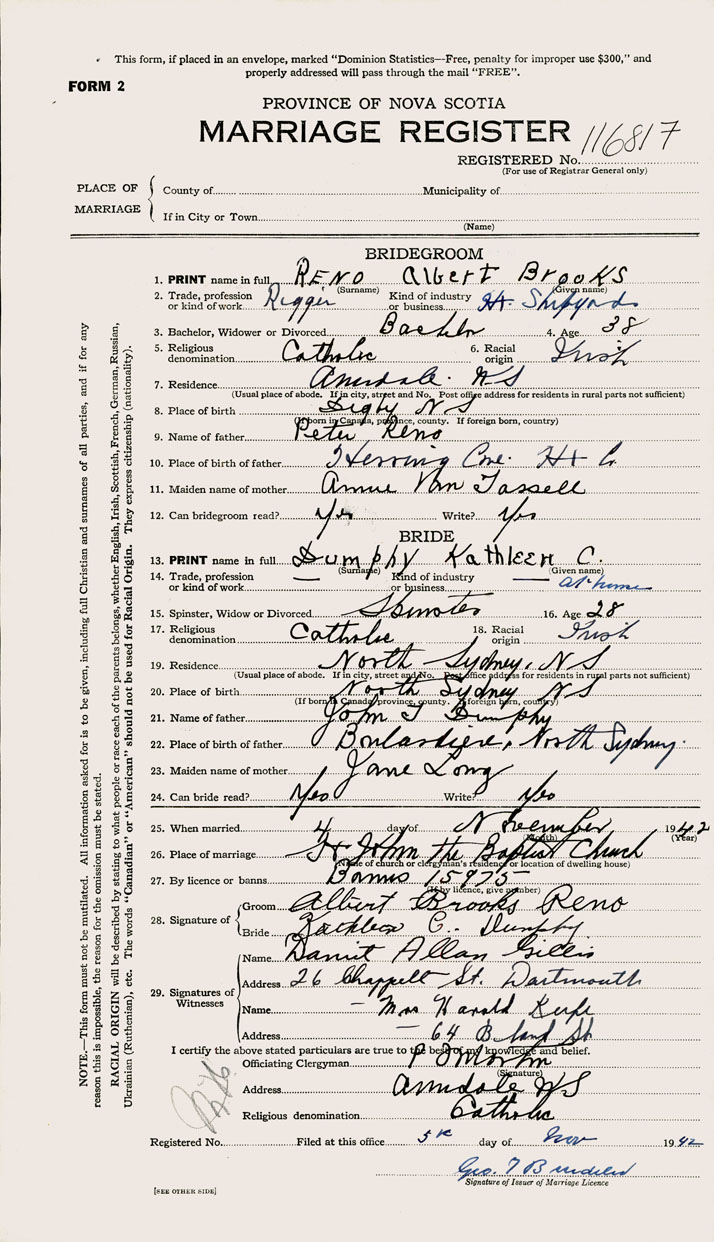 This form, if placed in an envelope, marked "Dominion Statistics—Free, penalty for improper use $300," and
properly addressed will pass through the mail "FREE".
FORM 2
PROVINCE OF NOVA SCOTIA
MARRIAGE REGISTER
REGISTERED No. 116817
(For use of Registrar General only)
PLACE OF MARRIAGE
County of Municipality of
If in City or Town
(Name)
BRIDEGROOM
1. PRINT name in full RENO Albert BrooKS
(Surname) (Given name)
2. Trade, profession or kind of work Rigger Kind of industry or business Hx. Shipyards
3. Bachelor, Widower or Divorced Bachlor 4. Age 38
5. Religious denomination Catholic 6. Racial origin Irish
7. Residence Armdale. NS
(Usual place of abode. If in city, street and No. Post office address for residents in rural parts not sufficient)
8. Place of birth Digby NS
(If born in Canada, province, county. If foreign born, country)
9. Name of father Peter Reno
10. Place of birth of father Herring Cove. Hx Co.
11. Maiden name of mother Annie Van Tassell
12. Can bridegroom read? Yes Write? Yes
BRIDE
13. PRINT name in full Dumphy Kathleen C.
(Surname) (Given name)
14. Trade, profession or kind of work — Kind of industry or business — At home
15. Spinster, Widow or Divorced Spinster 16. Age 28
17. Religious denomination Catholic 18. Racial origin Irish
19. Residence North Sydney, NS
(Usual place of abode. If in city, street and No. Post office address for residents in rural parts not sufficient)
20. Place of birth North Sydney NS
(If born in Canada, province, county. If foreign born, country)
21. Name of father John T Dumphy
22. Place of birth of father Boulardiere, North Sydney.
23. Maiden name of mother Jane Long
24. Can bride read? Yes Write? Yes
25. When married 4 day of November 1942
(Month) (Year)
26. Place of marriage St John the Baptist Church
(Name of church or clergyman's residence or location of dwelling house)
27. By licence or banns Banns 15975
(If by licence, give number)
28. Signature of
Groom Albert Brooks Reno
Bride Kathleen C. Dumphy
29. Signatures of Witnesses
Name Daniel Allan Gillis
Address 26 Chappell St. Dartmouth
Name — Mrs Harold
Address — 64 Bland St
I certify the above stated particulars are true to the best of my knowledge and belief.
Officiating Clergyman
(Signature)
Address Armdale NS
Religious denomination Catholic
Registered No. Filed at this office 5th day of Nov 1942
Geo.
Signature of Issuer of Marriage Licence
[SEE OTHER SIDE]
NOTE.—This form must not be mutilated. All information asked for is to be given, including full Christian and surnames of all parties, and if for any
reason this is impossible, the reason for the omission must be stated.
RACIAL ORIGIN will be described by stating to what people or race each of the parents belongs, whether English, Irish, Scottish, French, German, Russian,
Ukrainian (Ruthenian), etc. The words "Canadian" or "American" should not be used for Racial Origin. They express citizenship (nationality).